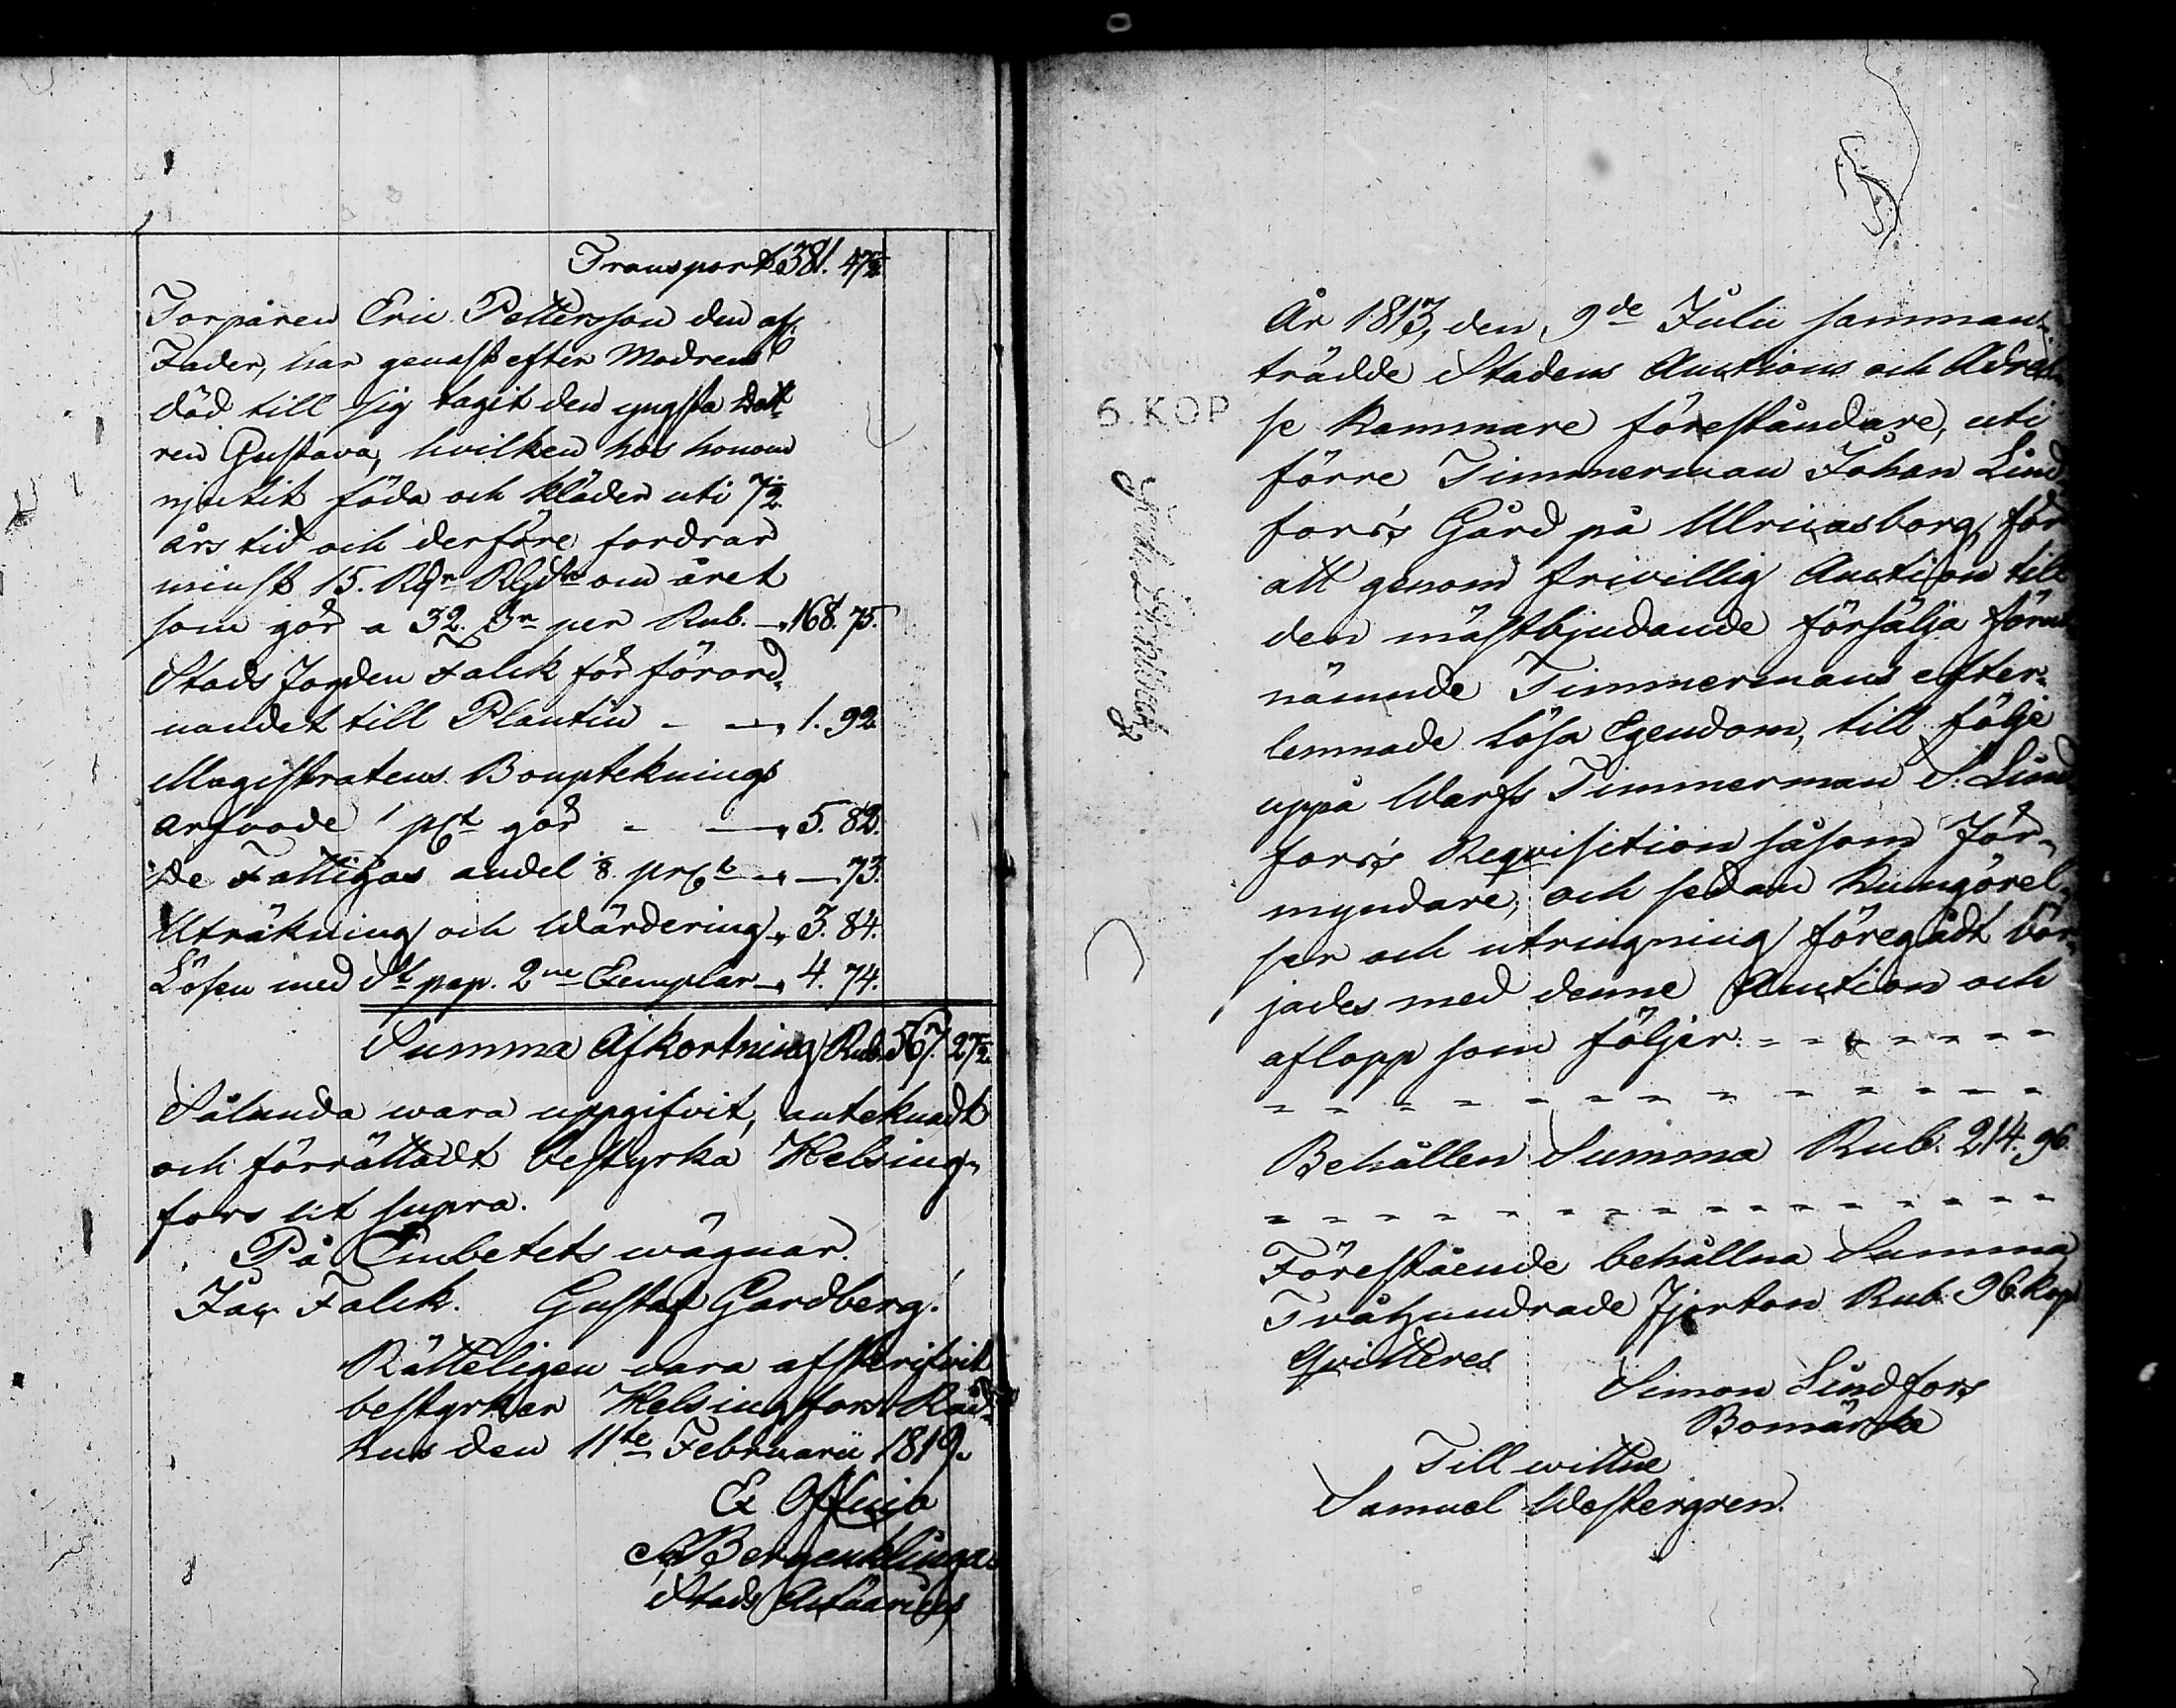 Transport 381. 47½
Torparen Eric Pettersson den afl.
Fader, har genast efter Modrens
död till sig tagit den yngsta Dott
ren Gustava, hvilken hos honom
njutit föda och kläder uti 7½
års tid och derföre fordrar
minst 15. Rdr Rgds om året
som gör a 32. sr per Rub. — „ 168. 75.
Stads Fogden Falck för förord„
nandet till Plantin - — „ 1. 92
Magistratens Bouptecknings
arfvode 1 pCt gör - — „ 5. 82.
De Fattigas andel ⅛ prCt — „ — 73.
Uträkning och Wärdering „ 3. 84.
Lösen med St. pap. 2ne Exemplar — „ 4. 74.
Summa Afkortning Rub. 567. 27½
Sålunda wara uppgifvit, anteknadt
och förrättadt bestyrka Helsing„
fors ut supra.
På Embetets wägnar.
Jac. Falck. Gustaf Gardberg.
Rätteligen vara afskrifvit
bestyrker Helsingfors Råd„
hus den 11te Februarii 1819.
Ex Officio
Bergenklinga
Stads Actuarius
6. KOP
År 1813, den 9de Julii samman„
trädde Stadens Auctions och Adres„
se Kammare föreståndare, uti
förre Timmerman Johan Lind„
fors's Gård på Ulricasborg, för
att genom frivillig Auction till
den mästbjudande försälja förut
nämnde Timmermans efter„
lemnade lösa Egendom, till följe
uppå Warfs Timmerman S. Lind
fors's Requisition såsom För„
myndare; och sedan Kungörel„
ser och utringning föregådt bör„
jades med denne Auction och
aflopp som följer: - - - - - - -
- - - - - - - - - - - - - -
Behållen Summa Rub. 214. 96.
- - - - - - - - - - - - - -
Förestående behållna Summa
Tvåhundrade Fjorton Rub. 96. kop
Qvitteres
Simon Lindfors
Bomärke
Till wittne
Samuel Westergren.